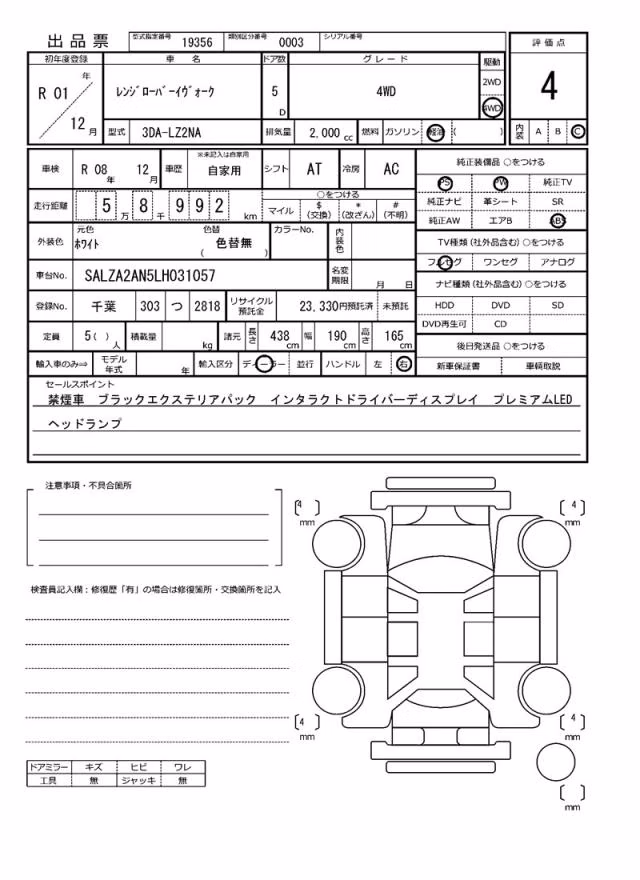 出品票 型式指定番号 19356 類別区分番号 0003 シリアル番号
初年度登録 車名 ドア数 グレード 駆動 評価点
R 01 年 12 月 ﾚﾝｼﾞﾛｰﾊﾞｰｲｳﾞｫｰｸ 5 D 4WD 2WD 4WD 4
型式 3DA-LZ2NA 排気量 2,000 cc 燃料 ガソリン 軽油 ( ) 内装 A B C
車検 R 08 年 12 月 車歴 ※未記入は自家用 自家用 シフト AT 冷房 AC
走行距離 5 万 8 千 9 9 2 km ○をつける
マイル $ (交換) * (改ざん) # (不明)
外装色 元色 ﾎﾜｲﾄ 色替 ( 色替無 ) カラーNo. 内装色
車台No. SALZA2AN5LH031057 名変期限 月 日
登録No. 千葉 303 つ 2818 リサイクル預託金 23,330円預託済 未預託
定員 5( ) 人 積載量 kg 諸元 長さ 438 cm 幅 190 cm 高さ 165 cm
輸入車のみ⇨ モデル年式 年 輸入区分 ディーラー 並行 ハンドル 左 右
純正装備品 ○をつける
PS PW 純正TV
純正ナビ 革シート SR
純正AW エアB ABS
TV種類(社外品含む) ○をつける
フルセグ ワンセグ アナログ
ナビ種類(社外品含む) ○をつける
HDD DVD SD
DVD再生可 CD
後日発送品 ○をつける
新車保証書 車輌取説
セールスポイント
禁煙車 ブラックエクステリアパック インタラクトドライバーディスプレイ プレミアムLED
ヘッドランプ
注意事項・不具合箇所
検査員記入欄：修復歴「有」の場合は修復箇所・交換箇所を記入
ドアミラー キズ ヒビ ワレ
工具 無 ジャッキ 無
[4 ] mm [ 4 ] mm
[4 ] mm [ 4 ] mm
[ ] mm